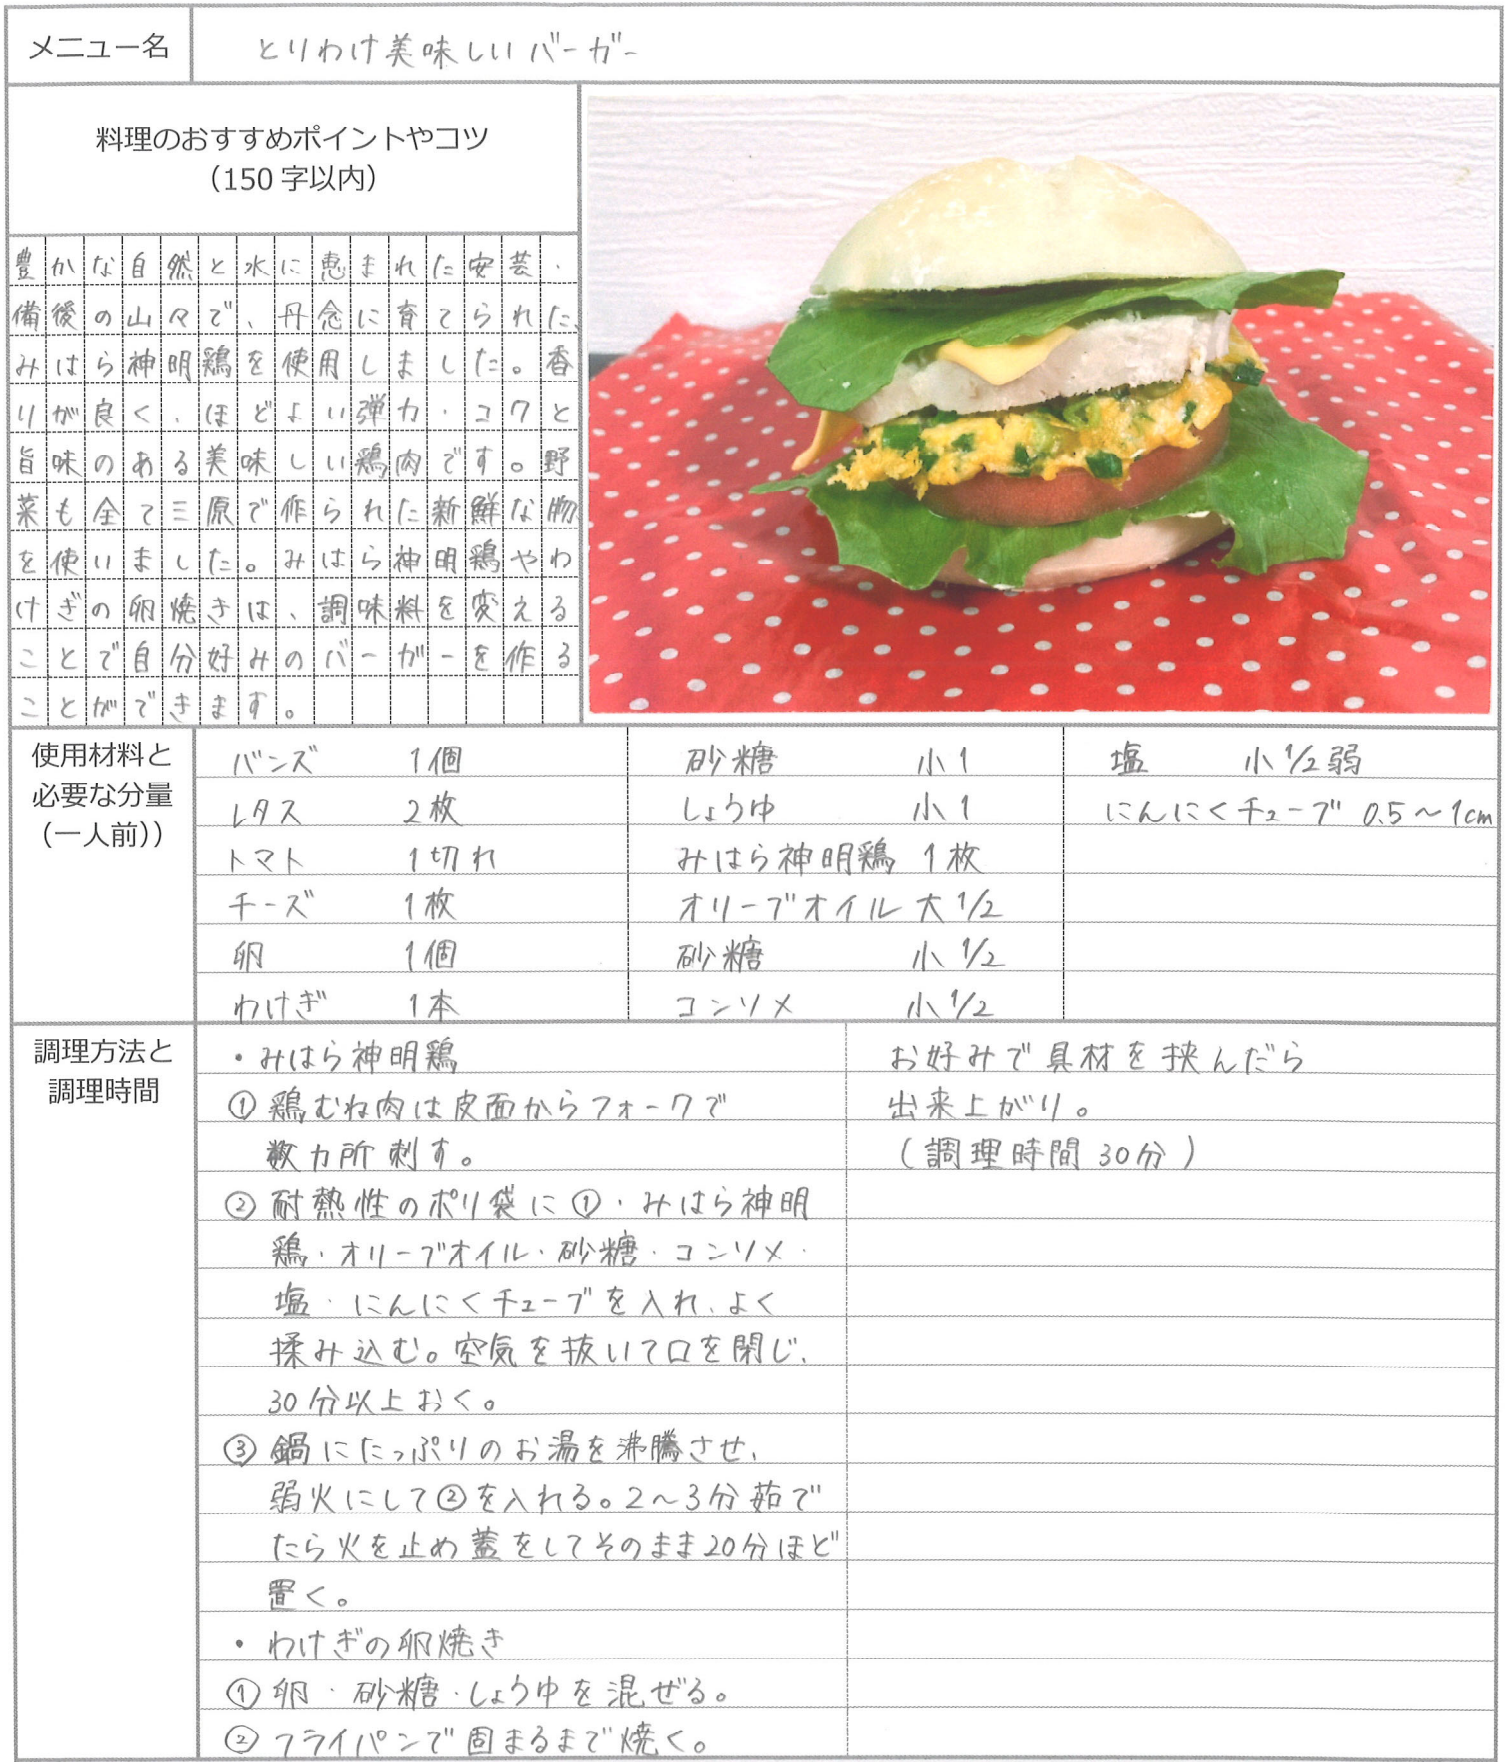 メニュー名
とりわけ美味しいバーガー
料理のおすすめポイントやコツ
(150字以内)
豊かな自然と水に恵まれた安芸・
備後の山々で、丹念に育てられた、
みはら神明鶏を使用しました。香
りが良く、ほどよい弾力・コクと
旨味のある美味しい鶏肉です。野
菜も全て三原で作られた新鮮な物
を使いました。みはら神明鶏やわ
けぎの卵焼きは、調味料を変える
ことで自分好みのバーガーを作る
ことができます。
使用材料と
必要な分量
(一人前))
バンズ 1個
レタス 2枚
トマト 1切れ
チーズ 1枚
卵 1個
わけぎ 1本
砂糖 小1
しょうゆ 小1
みはら神明鶏 1枚
オリーブオイル 大1/2
砂糖 小1/2
コンソメ 小1/2
塩 小1/2弱
にんにくチューブ 0.5〜1cm
調理方法と
調理時間
・みはら神明鶏
①鶏むね肉は皮面からフォークで
数カ所刺す。
②耐熱性のポリ袋に①・みはら神明
鶏・オリーブオイル・砂糖・コンソメ・
塩・にんにくチューブを入れ、よく
揉み込む。空気を抜いて口を閉じ、
30分以上おく。
③鍋にたっぷりのお湯を沸騰させ、
弱火にして②を入れる。2〜3分茹で
たら火を止め蓋をしてそのまま20分ほど
置く。
・わけぎの卵焼き
①卵・砂糖・しょうゆを混ぜる。
②フライパンで固まるまで焼く。
お好みで具材を挟んだら
出来上がり。
(調理時間30分)